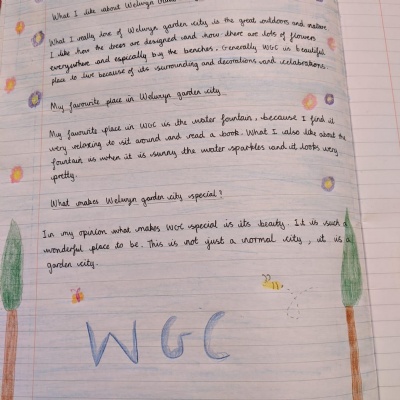 What I like about Welwyn
What I really love of Welwyn garden city is the great outdoors and nature
I like how the trees are designed and how there are lots of flowers
everywhere and especially buy the benches. Generally WGC is beautiful
place to live because of its surrounding and decorations and celabrations.
My favourite place in Welwyn garden city
My favourite place in WGC is the water fountain, because I find it
very relaxing to sit around and read a book. What I also like about the
fountain us when it is sunny the water sparkles and it looks very
pretty.
What makes Welwyn garden city special?
In my opinion what makes WGC special is its beauty. It is such a
wonderful place to be. This is not just a normal city, it is a
garden city.
WGC